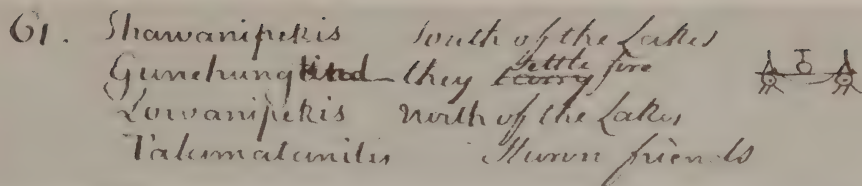 61. Shawanipekis South of the Lakes
Gunehung kind they carry settle fire
Lowanipekis North of the Lakes
Talamatanitis Huron friends